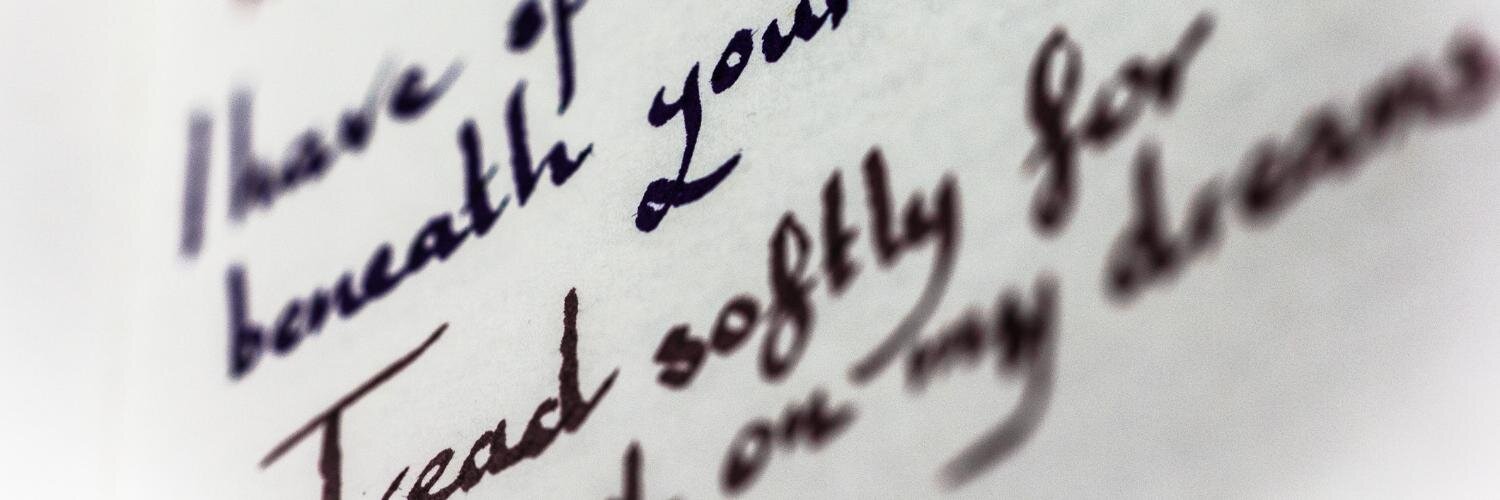 I have
beneath your
Tread softly for
on my dreams